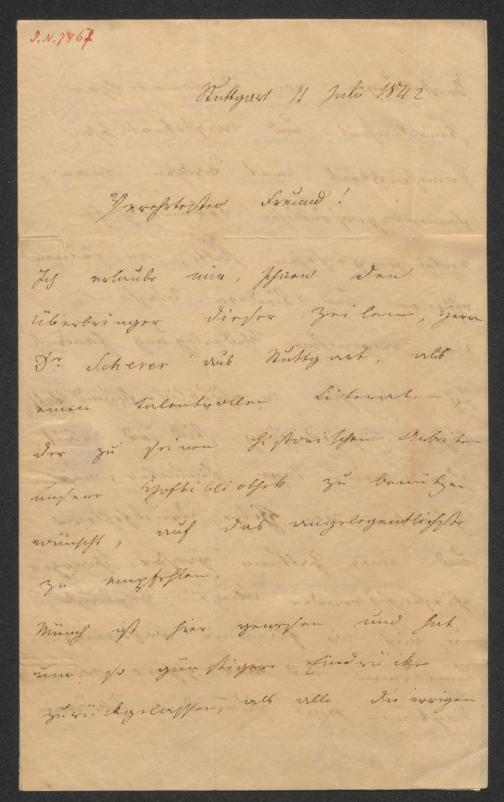 I.N. 7867
Stuttgart 11 Juli 1842
Verehrtester Freund!
Ich erlaube mir, Ihnen den
Überbringer dieser Zeilen, Herrn
Dr Scherer aus Stuttgart, als
einen talentvollen Literaten
der zu seinen historischen Arbeiten
unsere Hofbibliothek zu benützen
wünscht, auf das angelegentlichste
zu empfehlen.
Münch ist hier gewesen und hat
um so günstigere Eindrücke
zurückgelassen, als alle die irrigen